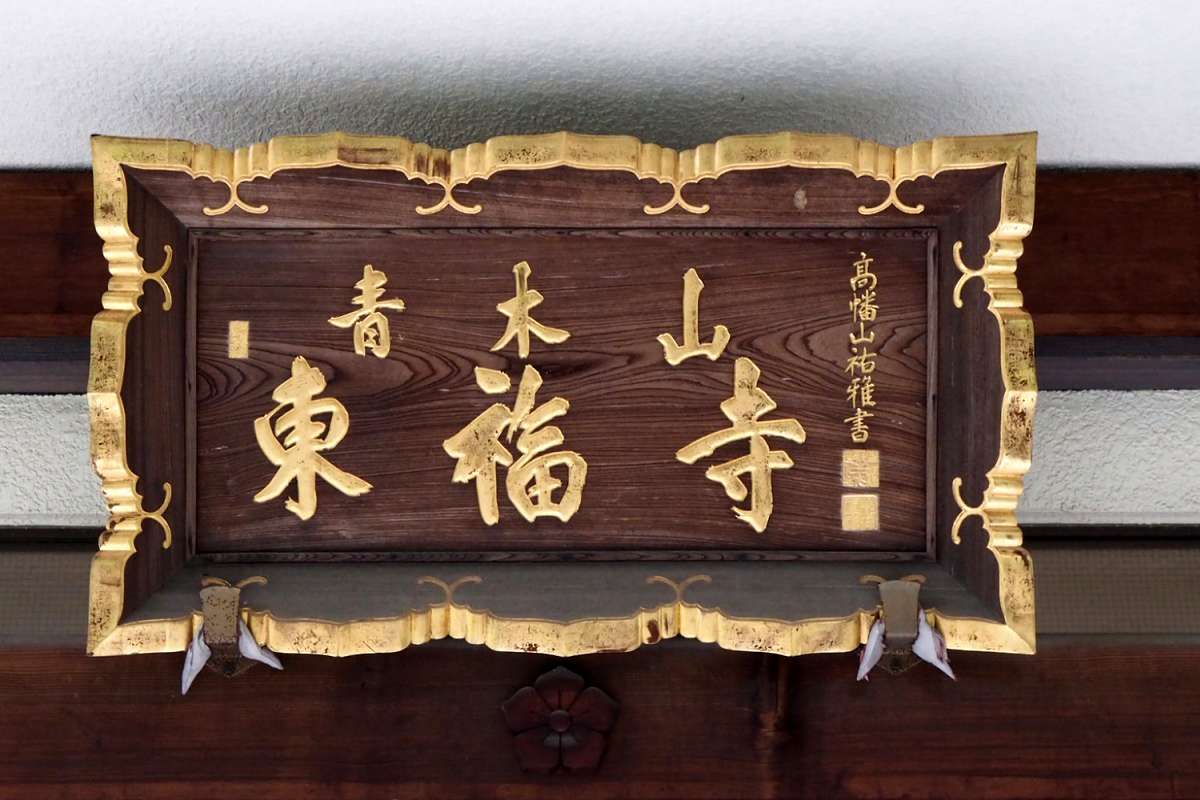 青木山
東福寺
髙幡山祐雅書